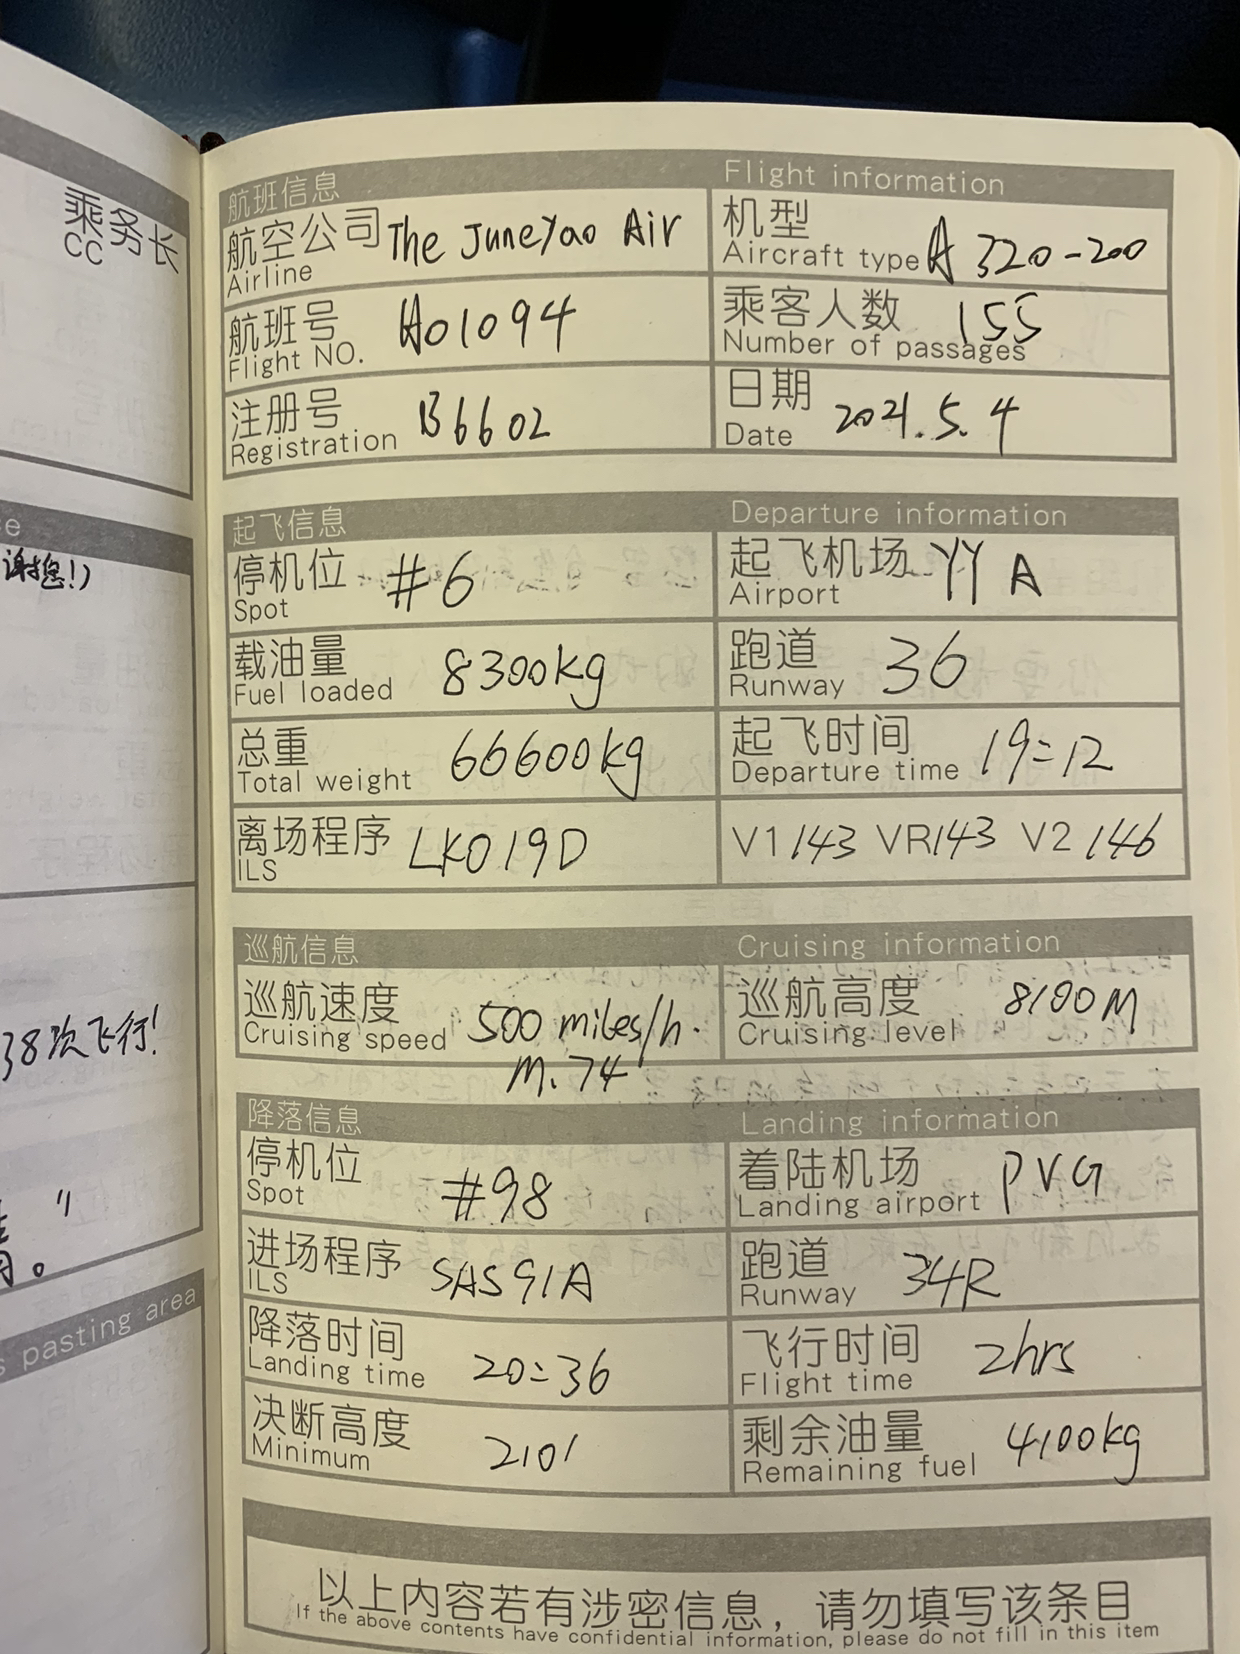 乘务长
CC
e
谢您!)
38次飞行!
"
。
s pasting area
航班信息 Flight information
航空公司 The JuneYao Air
Airline
机型
Aircraft type A 320-200
航班号 HO1094
Flight NO.
乘客人数 155
Number of passages
注册号 B6602
Registration
日期 2021.5.4
Date
起飞信息 Departure information
停机位 #6
Spot
起飞机场 YY A
Airport
载油量 8300kg
Fuel loaded
跑道 36
Runway
总重 66600kg
Total weight
起飞时间 19:12
Departure time
离场程序 LKO19D
ILS
V1 143 VR 143 V2 146
巡航信息 Cruising information
巡航速度 500 miles/h.
Cruising speed M.74
巡航高度 8100M
Cruising level
降落信息 Landing information
停机位 #98
Spot
着陆机场 PVG
Landing airport
进场程序 SAS91A
ILS
跑道 34R
Runway
降落时间 20:36
Landing time
飞行时间 2hrs
Flight time
决断高度 210'
Minimum
剩余油量 4100kg
Remaining fuel
以上内容若有涉密信息，请勿填写该条目
If the above contents have confidential information, please do not fill in this item